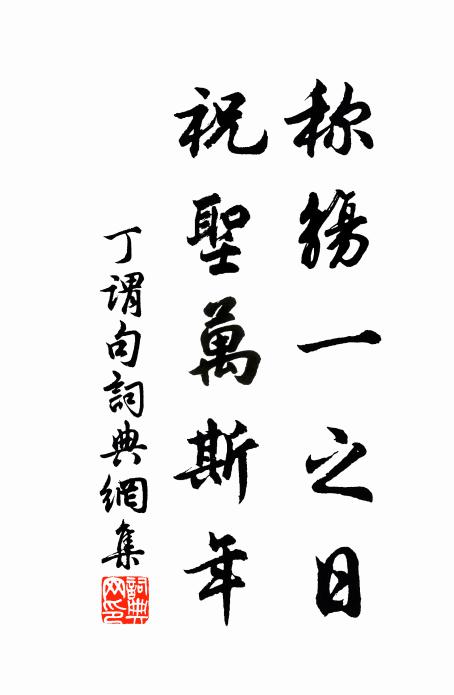 称觴一之日
祝聖萬斯年
丁谓句詞典網集
詞典网印